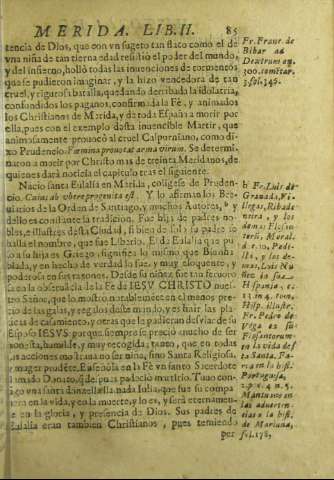 MERIDA. LIB. II. 85
tencia de Dios, que con vn sugeto tan flaco como el de
vna niña de tan tierna edad resistió el poder del mundo,
y del infierno, holló todas las inuenciones de tormentos
que se pudieron imaginar, y la hizo vencedora de tan
cruel, y rigurosa batalla, quedando derribada la idolatria,
confundidos los paganos, confirmada la Fè, y animados
los Christianos de Merida, y de toda España a morir por
ella, pues con el exemplo desta inuencible Martir, que
animasamente prouocó al cruel Calpurniano, como di-
xo Prudencio. Fœmina prouocat arma virum. Se determi-
naron a morir por Christo mas de treinta Meridanos, de
quienes dará noticia el capitulo tras el siguiente.
Nacio santa Eulalia en Merida, coligese de Pruden-
cio. Cuius ab vbere progenita est. Y lo afirman los Bre-
uiarios de la Orden de Santiago, y muchos Autores, b y
dello es constante la tradicion. Fue hija de padres no-
bles, e illustres desta Ciudad, si bien de solo su padre se
halla el nombre, que fue Liberio. El de Eulalia que pu-
so a su hija es Griego, significa lo mismo que Bienha-
blada, y en hecho de verdad lo fue, y muy eloquente, y
poderosa en sus razones. Desde su niñez fue tan feruoro
sa en la obseruancia de la Fè de IESV CHRISTO nues-
tro Señor, que lo mostró notablemente en el menos pre-
cio de las galas, y regalos deste mundo, y estraír las pla-
ticas de casamiento, y otras que la pudiessen desviar de su
Esposo IESVS: porque siempre se preció mucho de ser
honesta, humilde, y muy recogida; tanto, que en todas
sus acciones mostraua no ser niña, sino Santa Religiosa,
y muger prudẽte. Enseñola en la Fè vn santo Sacerdote
llamado Donato, q̃ de pusɔ padecio martirio. Tuuo con-
sigo vna santa donzella Iulia, que fue su compa
ñera en la vida, y en la muerte, y lo es, y será eternamen-
te en la gloria, y presencia de Dios. Sus padres de
Eulalia eran tambien Christianos, pues temiendo
per
Fr. Franc. de
Bibar ad
Dextrum an.
300. comitar.
3. fol. 346.
b Fr. Luis de
Granada, Vi-
llegas, Ribade
neira, y los
demas Flos
Mora-
d. 10, Padi-
lla, y los de-
mas, Luis Nu
ñez in sua
Hispania, c.
Hisp. illustr.
Fr. Pedro de
Vega en su
Flossanctorum
en la vida des
ta Santa, Fa-
ria en la hist.
Portuguesa,
2. p. c. 4. n. 5.
Mantuano en
las aduerten-
cias a la hist.
de Mariana,
fol. 178.